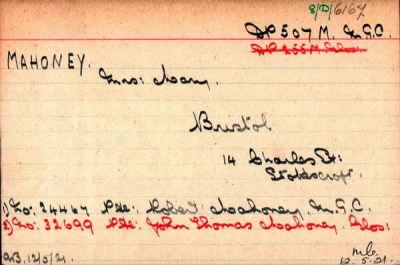 8/D/6167
DP 507 M. M.G.C.
DP 255 M Glos:
MAHONEY.
Mrs: Mary.
Bristol
14 Charles St:
Stokescroft.
1) No: 24467 Pte: Robert Mahoney. M.G.C.
2) No: 32699 Pte: John Thomas Mahoney. Glos:
12/5/21.
12.5.21.